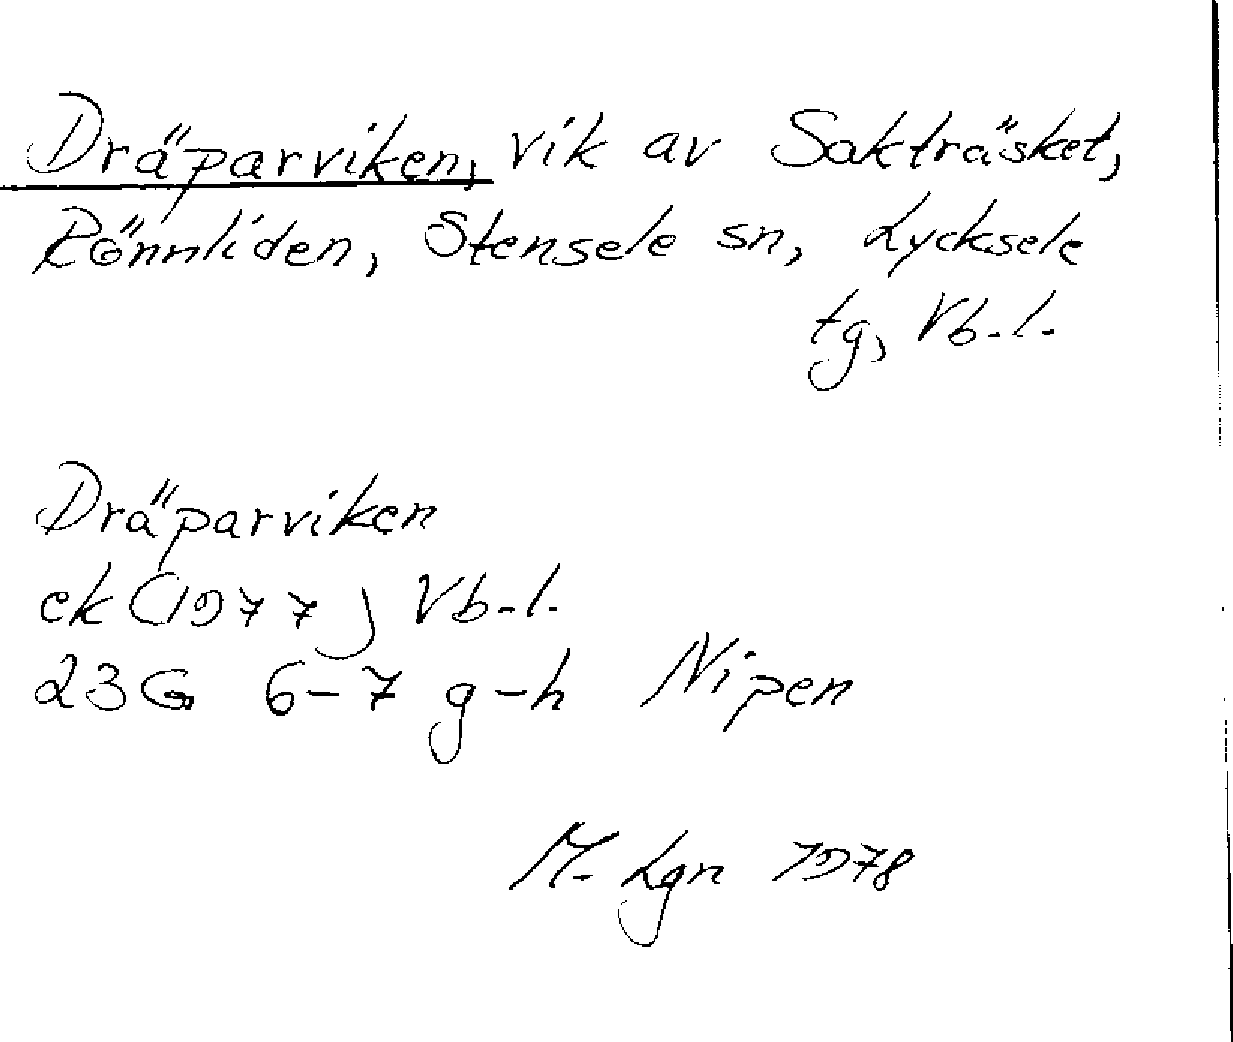 Dräparviken, vik av Sakträsket,
Rönnliden, Stensele sn, Lycksele
tg, Vb.l.
Dräparviken
ek (1977) Vb.l.
23G 6-7 g-h Nipen
M. Lgn 1978